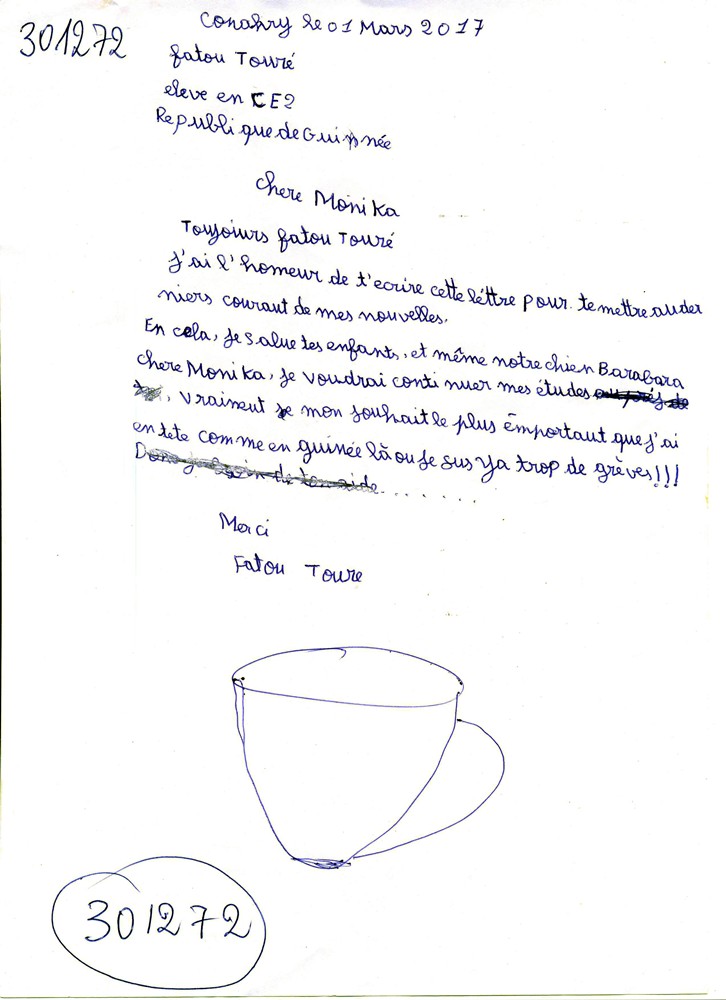 301272
Conakry le 01 Mars 2017
fatou Touré
eleve en CE2
Republique de Guinnée
chere Monika
Toujours fatou Touré
J'ai l'homeur de t'ecrire cette léttre pour te mettre au der
niers courant de mes nouvelles.
En cela, je salue tes enfants, et même notre chien Barabara
chere Monika, je voudrai conti nuer mes études
, vraiment je mon souhait le plus émportaut que j'ai
en tete comme en guinée là ou je sus ya trop de grèves!!!
Merci
Fatou Toure
301272